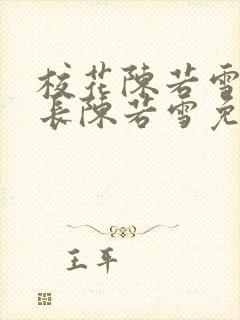 校花陳若雪
長陳若雪免
王平